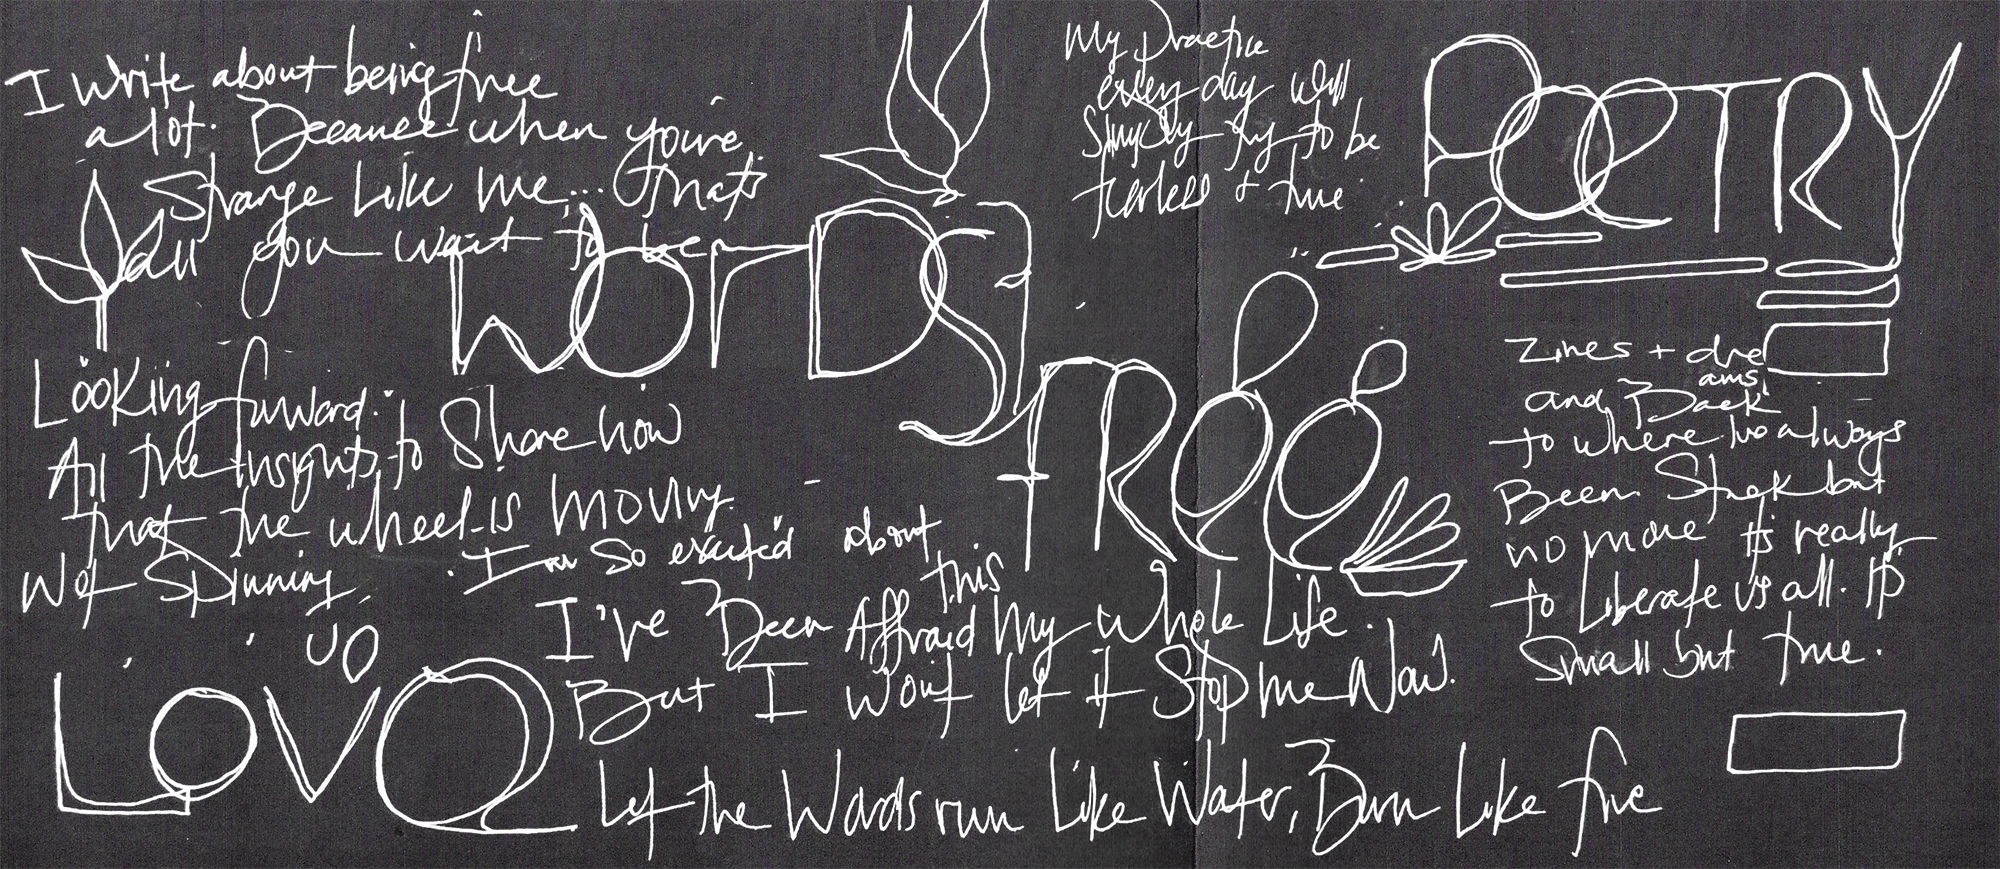 I write about being free
a lot. Because when you're
Strange Like me... that's
all you want to be
WORDS
My practice
every day will
Simply try to be
fearless + true.
POETRY
Looking forward.
All the insights to Share now
that the wheel is moving.
Not Spinning
FREE
Zines + dre
ams,
and Back
to where we always
Been. Stuck but
no more It's really
to Liberate us all. It's
Small but true.
I am so excited about
this
I've Been Affraid My whole Life.
But I won't let it Stop me Now.
LOVE
Let the Words run Like Water, Burn Like fire